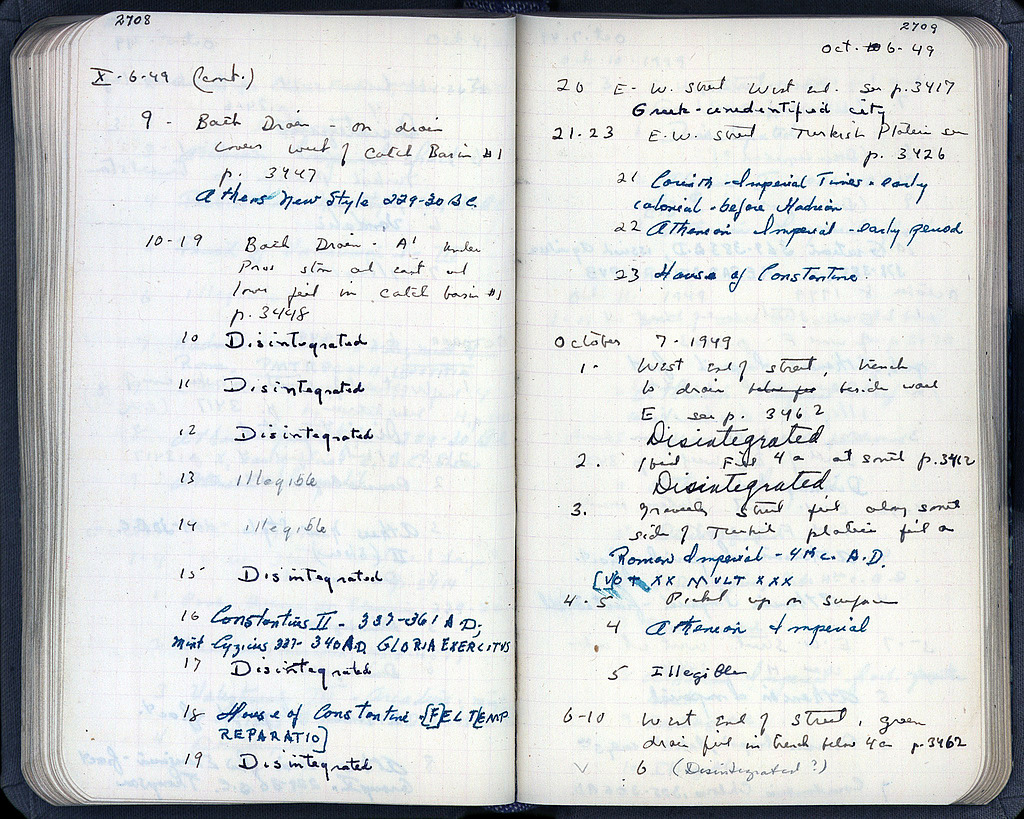 2708
X-6-49 (cont.)
9 - Bath Drain on drain
covers west of Catch Basin #1
p. 3447
Athens New Style 229-30 B.C.
10-19 Bath Drain - A' under
Pros at east end
fill in catch basin #1
p. 3448
10 Disintegrated
11 Disintegrated
12 Disintegrated
13 Illegible
14 illegible
15 Disintegrated
16 Constantius II - 337-361 A.D.
Mint Cyzicus 337-340 A.D. GLORIA EXERCITUS
17 Disintegrated
18 House of Constantine [F]EL T[EMP
REPARATIO]
19 Disintegrated
2709
Oct. 6-49
20 E-W. street West end. see p. 3417
Greek-unidentified city
21-23 E.W. street Turkish Platein see
p. 3426
21 Corinth - Imperial Times - early
colonial - before Hadrian
22 Athenian Imperial - early period
23 House of Constantine
October 7-1949
1- West end of street trench
to drain beside wall
E see p. 3462
Disintegrated
2. Ibid Fill 4a at south p. 3462
Disintegrated
3. gravelly street fill along south
side of Turkish platein fill a
Roman Imperial - 4th c. A.D.
[VOT XX MVLT XXX
4 5 Picked up on surface
4 Athenian Imperial
5 Illegible
6-10 West end of Street, green
drain fill in trench below 4a p. 3462
6 (Disintegrated?)